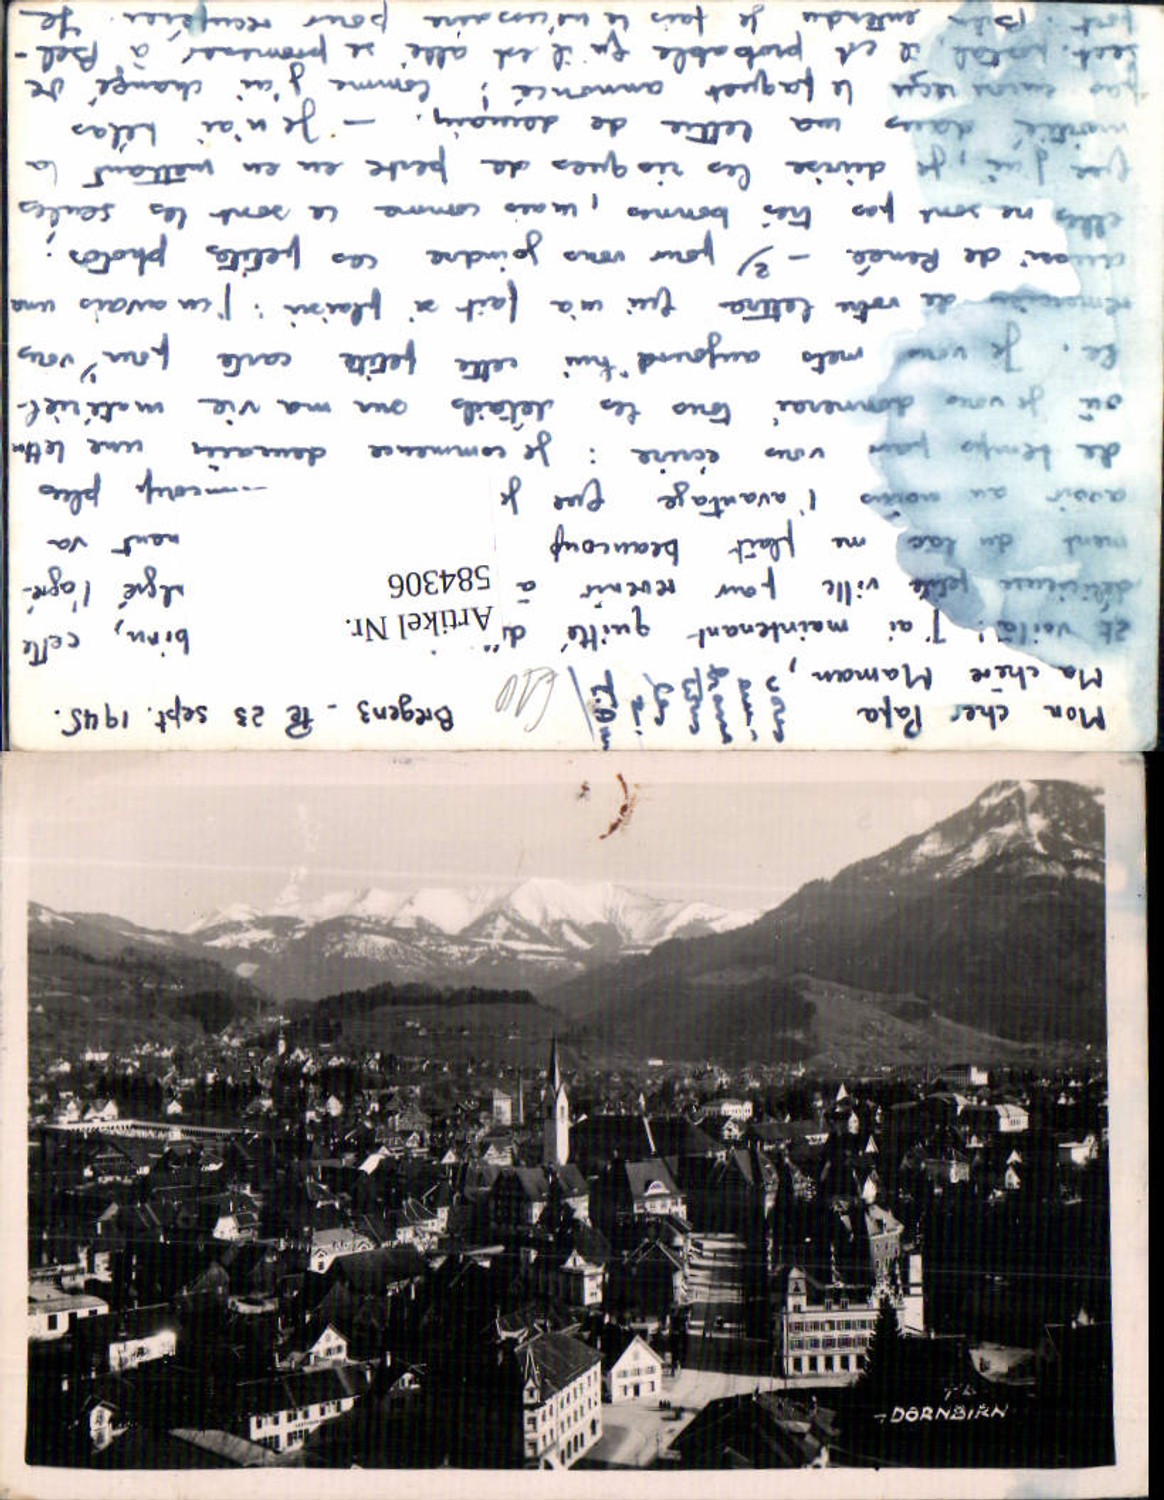 Bregenz - le 23 sept. 1945.
Mon cher Papa
Ma chère Maman,
Et voilà! J'ai maintenant quitté birn, cette
délicieuse petite ville pour revenir à l'agré-
ment du lac me plaît beaucoup nant va
avoir au moins l'avantage que je plus
de temps pour vous écrire : je commence demain une lettre
où je vous donnerai tous les détails sur ma vie matériel-
le. Je vous mets aujourd'hui cette petite carte pour 1) vous
remercier de votre lettre qui m'a fait si plaisir : j'en avais une
aussi de Renée - 2) pour vous joindre ces petites photos ;
elles ne sont pas très bonnes, mais comme ce sont les seules
que j'ai, je divise les risques de perte en en mettant la
moitié dans ma lettre de demain. - Je n'ai hélas
pas encore reçu le paquet annoncé ; comme j'ai changé de
sect. postal, il est probable qu'il est allé se promener à Bel-
fort. Bien entendu je fais le nécessaire pour récupérer. Je
Artikel Nr.
584306
- DORNBIRN